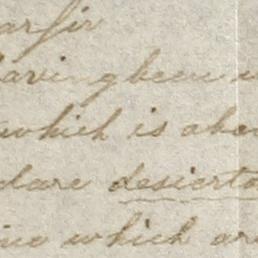 ar sir
aving been
which is abo
dare desierto
ine which ar